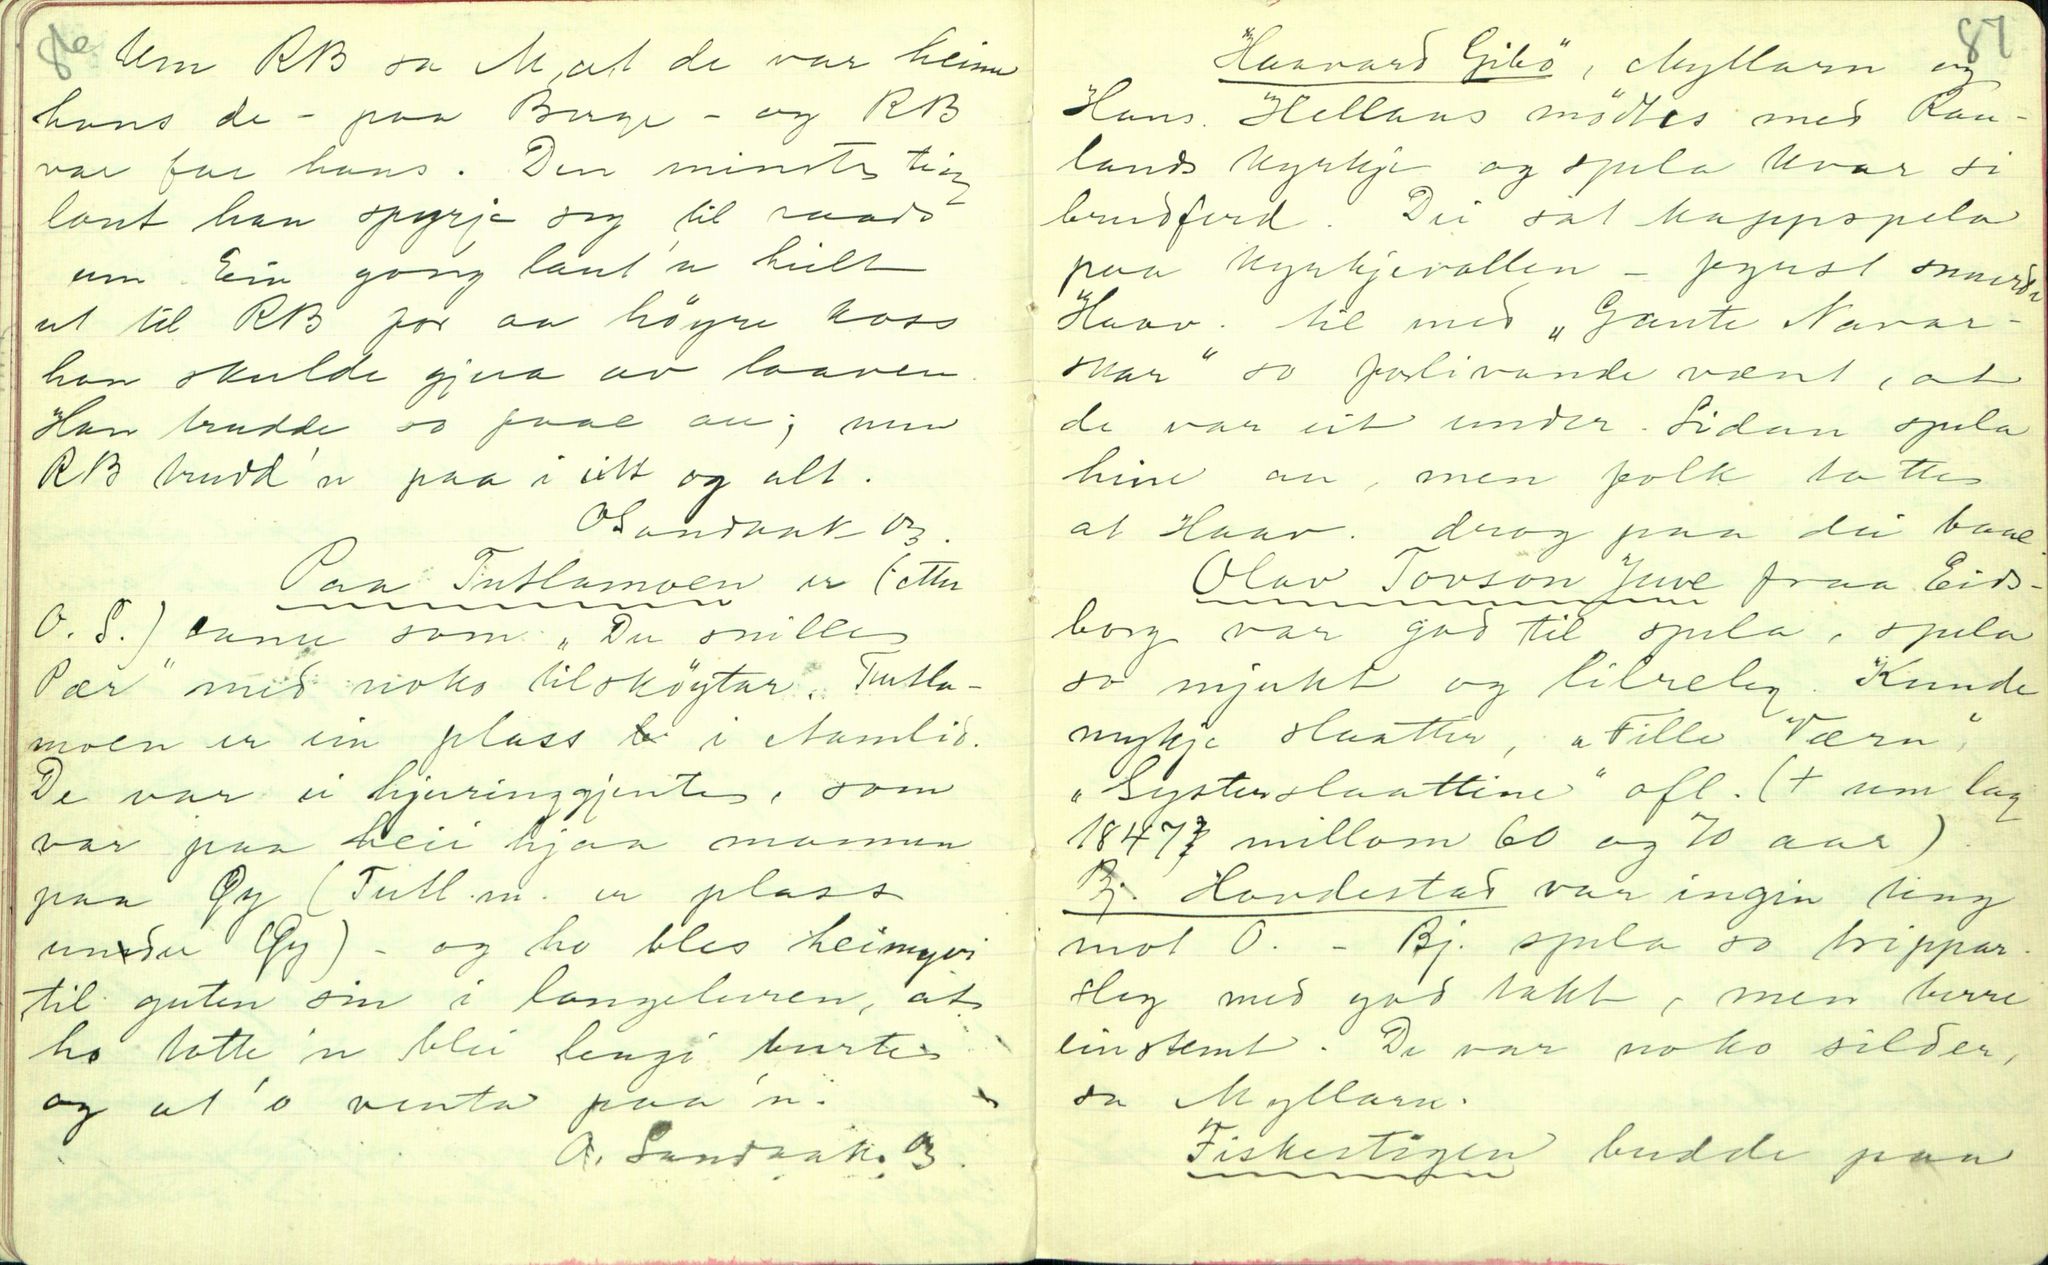 86
Um RB sa M, at de var heime
hans de - paa Berge - og RB
var far hans. Den minste ting
laut han spyrja seg til raads
um. Ein gong laut'n heilt
ut til RB for aa höyre koss
han skulde gjera av laaven.
Han trudde so faae au; men
RB trudd'n paa i eitt og alt.
OSandaak 03.
Paa Tutlamoen er (etter
O. S.) same som „Du snille
Pær" med noko tilsköytar. Tutla-
moen er ein plass i Aamlid.
De var ei hjuringgjente, som
var paa heii hjaa mannen
paa Øy (Tutl.m. er plass
under Øy) - og ho bles heimyvi
til guten sin i langeluren, at
ho totte'n blei lengi burte
og at'o venta paa'n.
O. Sandaak. 03.
87
Haavard Gibö, Myllarn og
Hans Hellaas mödtes med Rau-
lands kyrkje og spela kvar si
brudferd. Dei sat kappspela
paa kyrkjevollen - fyrst snaerde
Haav. til med „Gante Navar-
skar" so forlivande vent, at
de var eit under. Sidan spela
hine au, men folk totte
at Haav. drog paa dei baae.
Olav Tovsön Juve fraa Eids-
borg var god til spela, spela
so mjukt og lilreleg. Kunde
mykje slaatter, „Fille Værn",
„Systerslaattine" ofl. († um lag
1847 millom 60 og 70 aar)
Bj. Hovdestad var ingin ting
mot O. - Bj. spela so trippar-
sleg med god takt, men berre
einstemt. De var noko silder,
sa Myllarn.
Fiskestigen budde paa